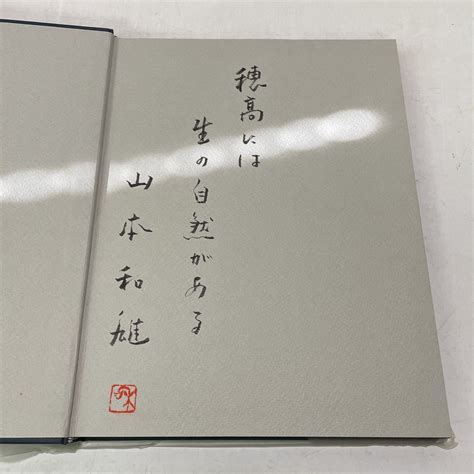 穂高には
生の自然がある
山本和雄